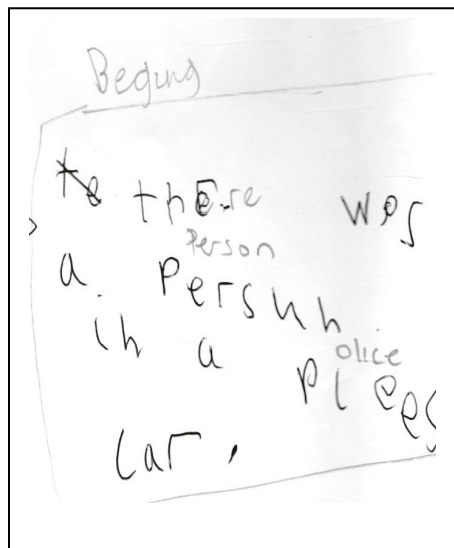 Begung
to thEre wos
Person
a Persuh
ih a olice
Plees
Car.